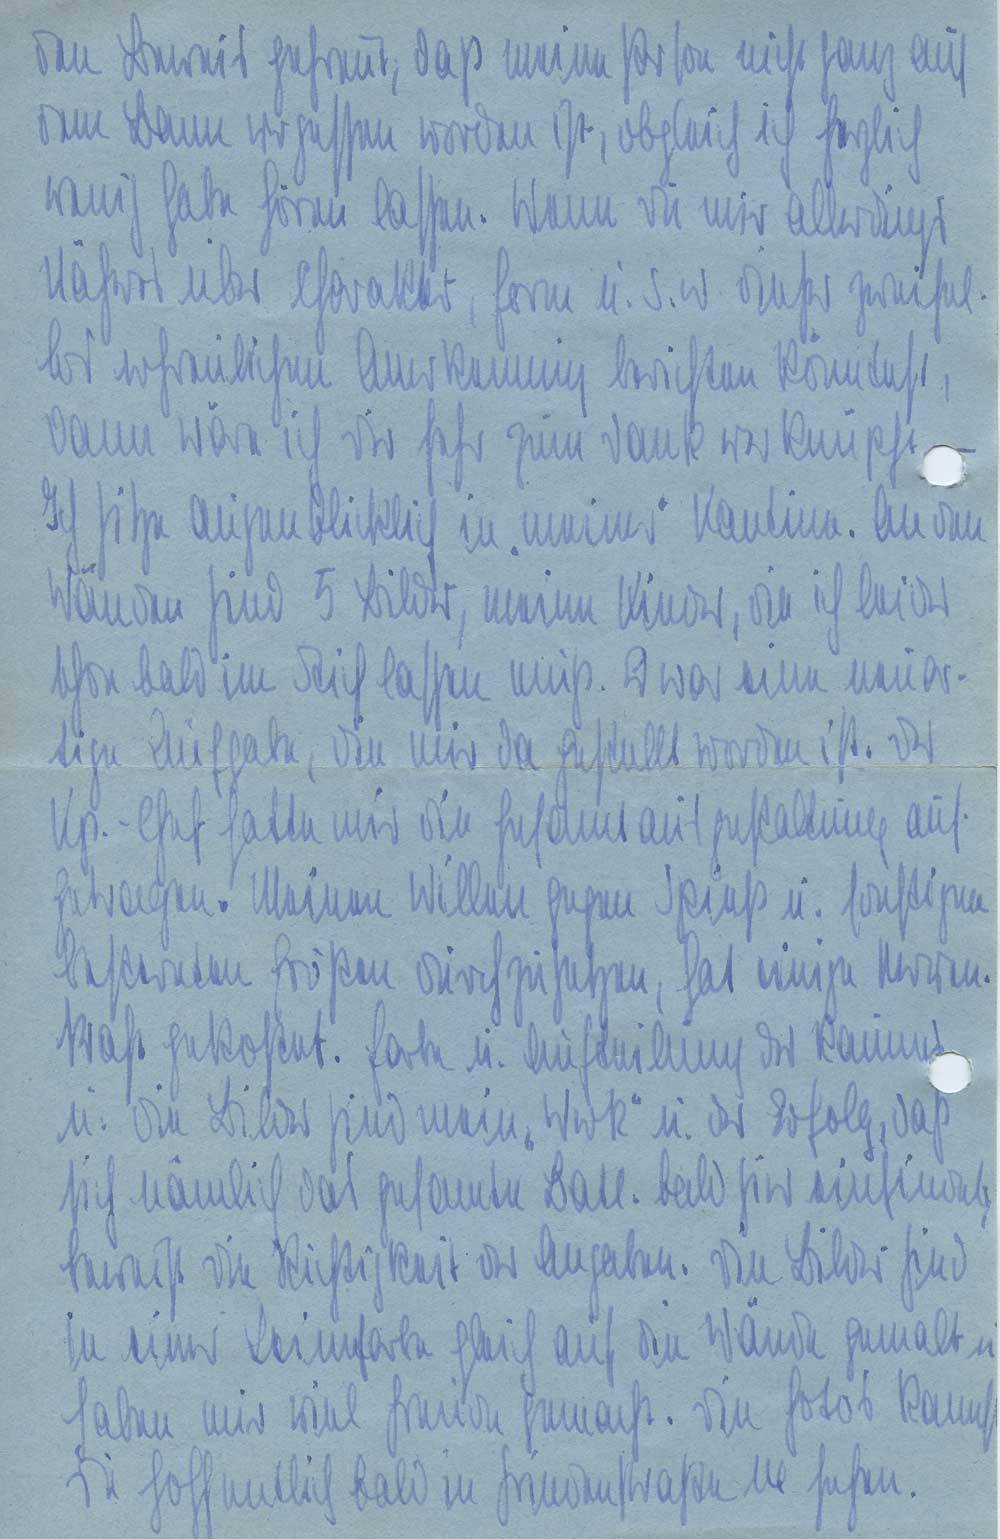 den Beweis gefreut, daß meine Person nicht ganz aus
dem Bann vergessen worden ist, obgleich ich herzlich
wenig habe hören lassen. Wenn Du mir allerdings
Näheres über Charakter, Form u.s.w. dieser zweifel-
los erfreulichen Anerkennung berichten könntest,
dann wäre ich Dir sehr zum Dank verknüpft. –
Ich sitze augenblicklich in „meiner“ Kantine. An den
Wänden sind 5 Bilder, meine Kinder, die ich leider
schon bald im Stich lassen muß. War eine neuar-
tige Aufgabe, die mir da gestellt worden ist. Der
Kp.-Chef hatte mir die Gesamtausgestaltung auf-
getragen. Meinen Willen gegen Spieß u. sonstigen
besternten Größen durchzusetzen, hat einige Nerven-
kraft gekostet. Farbe u. Aufteilung des Raumes
u. die Bilder sind mein „Werk“ u. der Erfolg, daß
sich nämlich das gesamte Batl. bald hier einfindet,
beweist die Richtigkeit der Angaben. Die Bilder sind
in einer Leimfarbe gleich auf die Wände gemalt u.
haben mir viel Freude gemacht. Die Fotos kannst
Du hoffentlich bald in sehen.